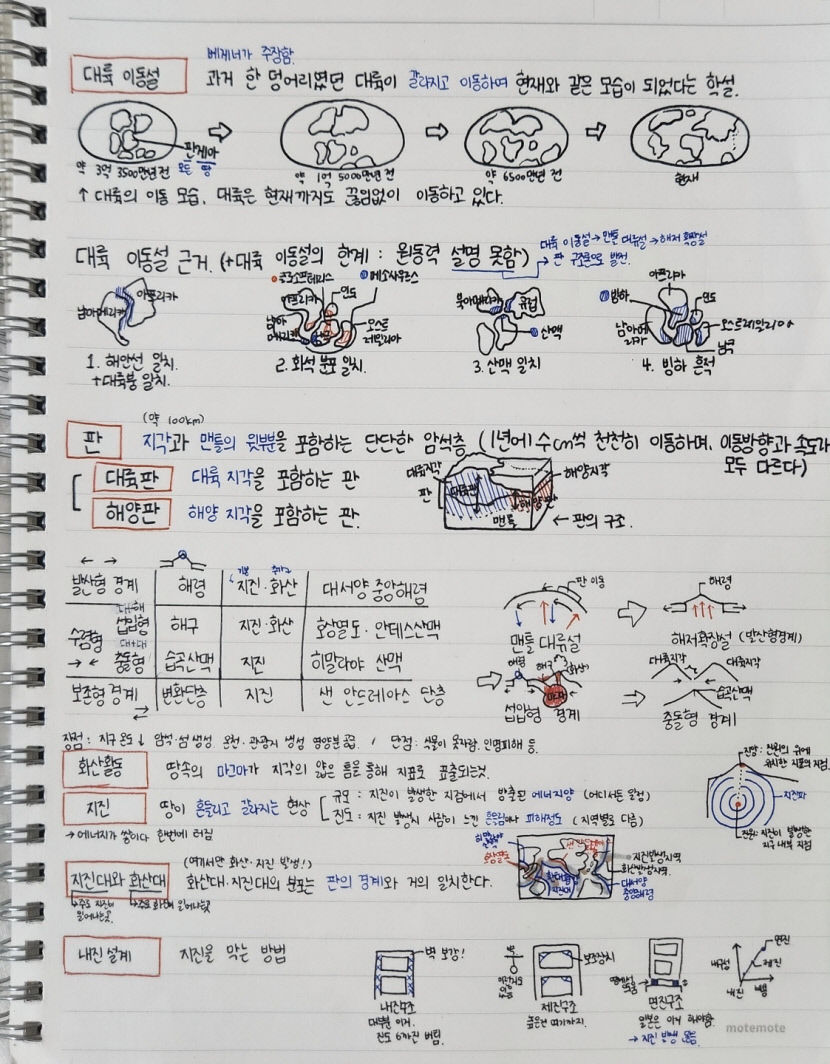 베게너가 주장함.
대륙 이동설 과거 한 덩어리였던 대륙이 갈라지고 이동하여 현재와 같은 모습이 되었다는 학설.
판게아
모든 땅
약 3억 3500만년 전 약 1억 5000만년 전 약 6500만년 전 현재
↑ 대륙의 이동 모습, 대륙은 현재까지도 끊임없이 이동하고 있다.
대륙 이동설 → 맨틀 대류설 → 해저 확장설
→ 판 구조론으로 발전.
대륙 이동설 근거. (+대륙 이동설의 한계 : 원동력 설명 못함)
아프리카
남아메리카
1. 해안선 일치.
+대륙붕 일치.
글로소프테리스 메소사우루스
아프리카 인도
남아메리카
오스트레일리아
2. 화석 분포 일치.
북아메리카 유럽
산맥
3. 산맥 일치
아프리카
빙하 인도
남아메리카 오스트레일리아
남극
4. 빙하 흔적
(약 100km)
판 지각과 맨틀의 윗부분을 포함하는 단단한 암석층 (1년에 수cm씩 천천히 이동하며, 이동방향과 속도가
모두 다르다)
대륙판 대륙 지각을 포함하는 판
해양판 해양 지각을 포함하는 판.
대륙지각 해양지각
판 대륙판 해양판
맨틀 ← 판의 구조.
발산형 경계 해령 지진·화산 대서양 중앙해령
수렴형 섭입형 해구 지진·화산 화상열도·안데스산맥
충돌형 습곡산맥 지진 히말라야 산맥
보존형 경계 변환단층 지진 샌 안드레아스 단층
판 이동
맨틀 대류설
해령
해저확장설 (발산형경계)
해령 해구 화산
마그마
섭입형 경계
대륙지각 대륙지각
습곡산맥
충돌형 경계
장점 : 지구 온도↓ 암석·섬 생성 온천·관광지 생성 영양분 공급. / 단점 : 식물이 못자람, 인명피해 등.
화산활동 땅속의 마그마가 지각의 얇은 틈을 통해 지표로 표출되는것.
지진 땅이 흔들리고 갈라지는 현상
규모 : 지진이 발생한 지점에서 방출된 에너지양 (어디서든 일정)
진도 : 지진 발생시 사람이 느낀 흔들림이나 피해정도 (지역별로 다름)
→ 에너지가 쌓이다 한번에 터짐
진앙 : 진원의 위에
위치한 지표의 지점.
지진파
진원 : 지진이 발생한
지구 내부 지점
(여기서만 화산·지진 발생!)
지진대와 화산대 화산대·지진대의 분포는 판의 경계와 거의 일치한다.
→주요 지진이
일어나는곳.
→주요 화산이 일어나는곳
지진발생지역
화산발생지역.
대서양
중앙해령
내진 설계 지진을 막는 방법
벽 보강!
내진구조
대부분 이거.
진도 6까진 버팀.
보강장치
제진구조
높은건 여기까지.
면진구조
일본은 이거 해야함.
→ 지진 발생 많음
면진
제진
내진
내구성
비용
motemote